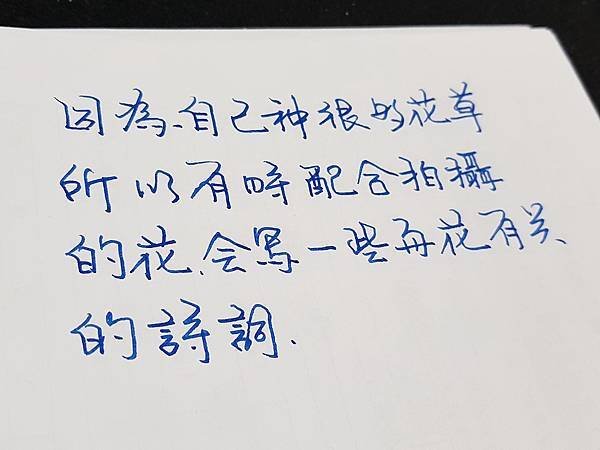 因為、自己神很多花草
所以有時配合拍攝
的花、会寫一些再花有关、
的詩詞.